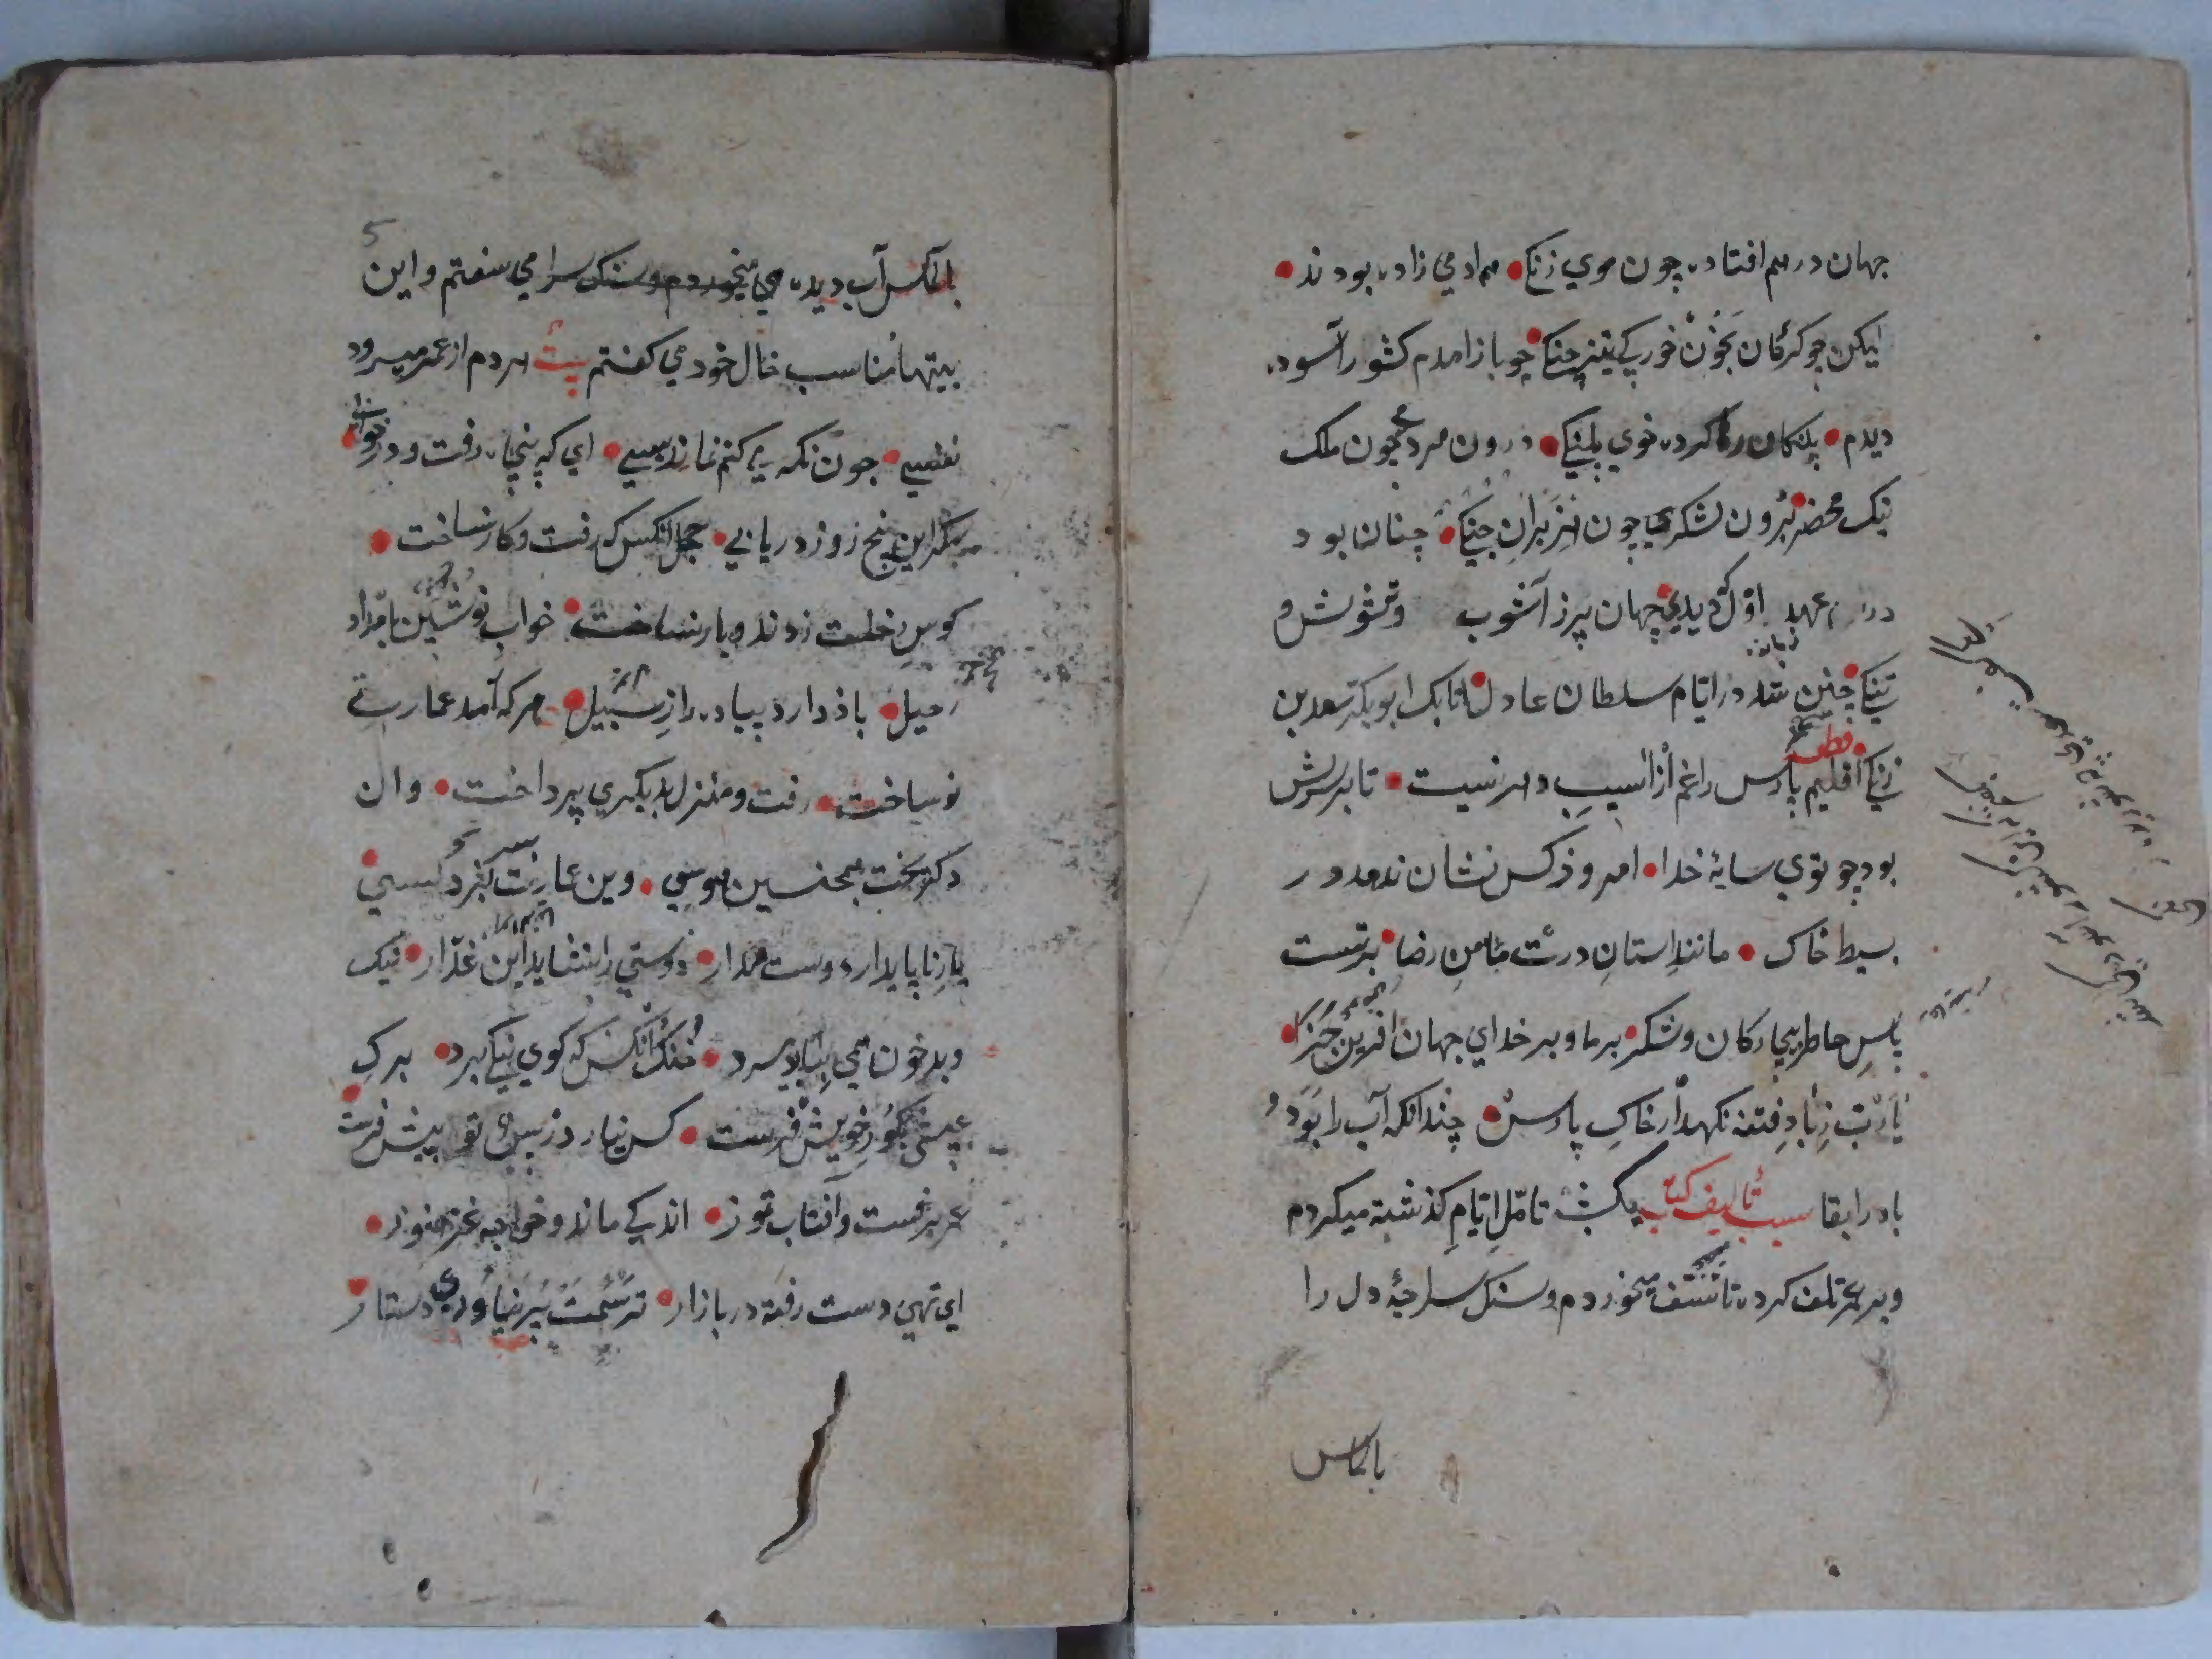 جهان درهم افتاده چون موي زنكي همه ادمي زاده بودند
ليكن چو كركان بخون خوركي تيز چنكي چو باز امدم كشور آسوده
ديدم پلنكان رها كرده خوي پلنكي درون مردمي چون ملك
نيك محضر برون لشكري چون هزبران جنكي چنان بود
در عهد اول كه ديدي جهان پر ز آشوب وتشويش و
تنكي چنين شد در ايام سلطان عادل اتابك ابو بكر سعد بن
زنكي قطعه اقليم پارس را غم از آسيب دهر نيست تا بر سرش
بود چو توي سايه خدا امروز كس نشان ندهد در
بسيط خاك مانند استان درت مامن رضا برتست
پاس خاطر بيچاركان وشكر بر ما وبر خداي جهان افرين جزا
يارب زباد فتنه نكهدار خاك پارس چندانكه آب را بود و
باد را بقا سبب تاليف كتاب يكشب تامل ايام كذشته ميكردم
وبر عمر تلف كرده تاسف ميخوردم وسنك سراچه دل را
بالماس
5
بالماس آب ديده مي سفتم واين
بيتها مناسب حال خود مي كفتم بيت هر دم از عمر ميرود
نفسي چون نكه مي كنم نماند بسي اي كه پنجاه رفت ودر خوابي
مكر اين پنج روز دريابي خجل انكس كه رفت وكار نساخت
كوس رحلت زدند وبار نساخت خواب نوشين بامداد
رحيل باز دارد پياده را ز سبيل هر كه آمد عمارتي
نو ساخت رفت ومنزل بديكري پرداخت وان
دكر پخت همچنين هوسي وين عمارت بسر نبرد كسي
يار ناپايدار دوست مدار دوستي را نشايد اين غدار نيك
وبد چون همي ببايد مرد خنك انكس كه كوي نيكي برد برك
عيشي بكور خويش فرست كس نيارد ز پس تو پيش فرست
عمر برفست وآفتاب تموز اندكي ماند وخواجه غره هنوز
اي تهي دست رفته در بازار ترسمت پر نياوري دستار